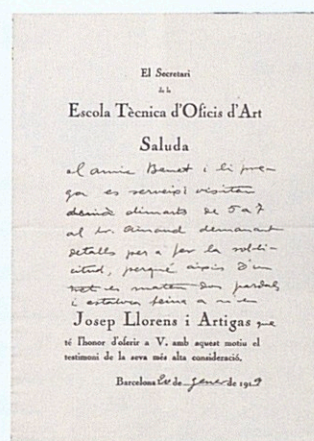 El Secretari
de la
Escola Tècnica d'Oficis d'Art
Saluda
el amic Benet i li pre-
ga es serveixi visitar
dimarts de 5 a 7
al Sr. demanant
detalls per a fer la sol·li-
citud, perquè així d'un
es maten dos pardals
i estalvia feina a n'en
Josep Llorens i Artigas que
té l'honor d'oferir a V. amb aquest motiu el
testimoni de la seva més alta consideració.
Barcelona de gener de 1919